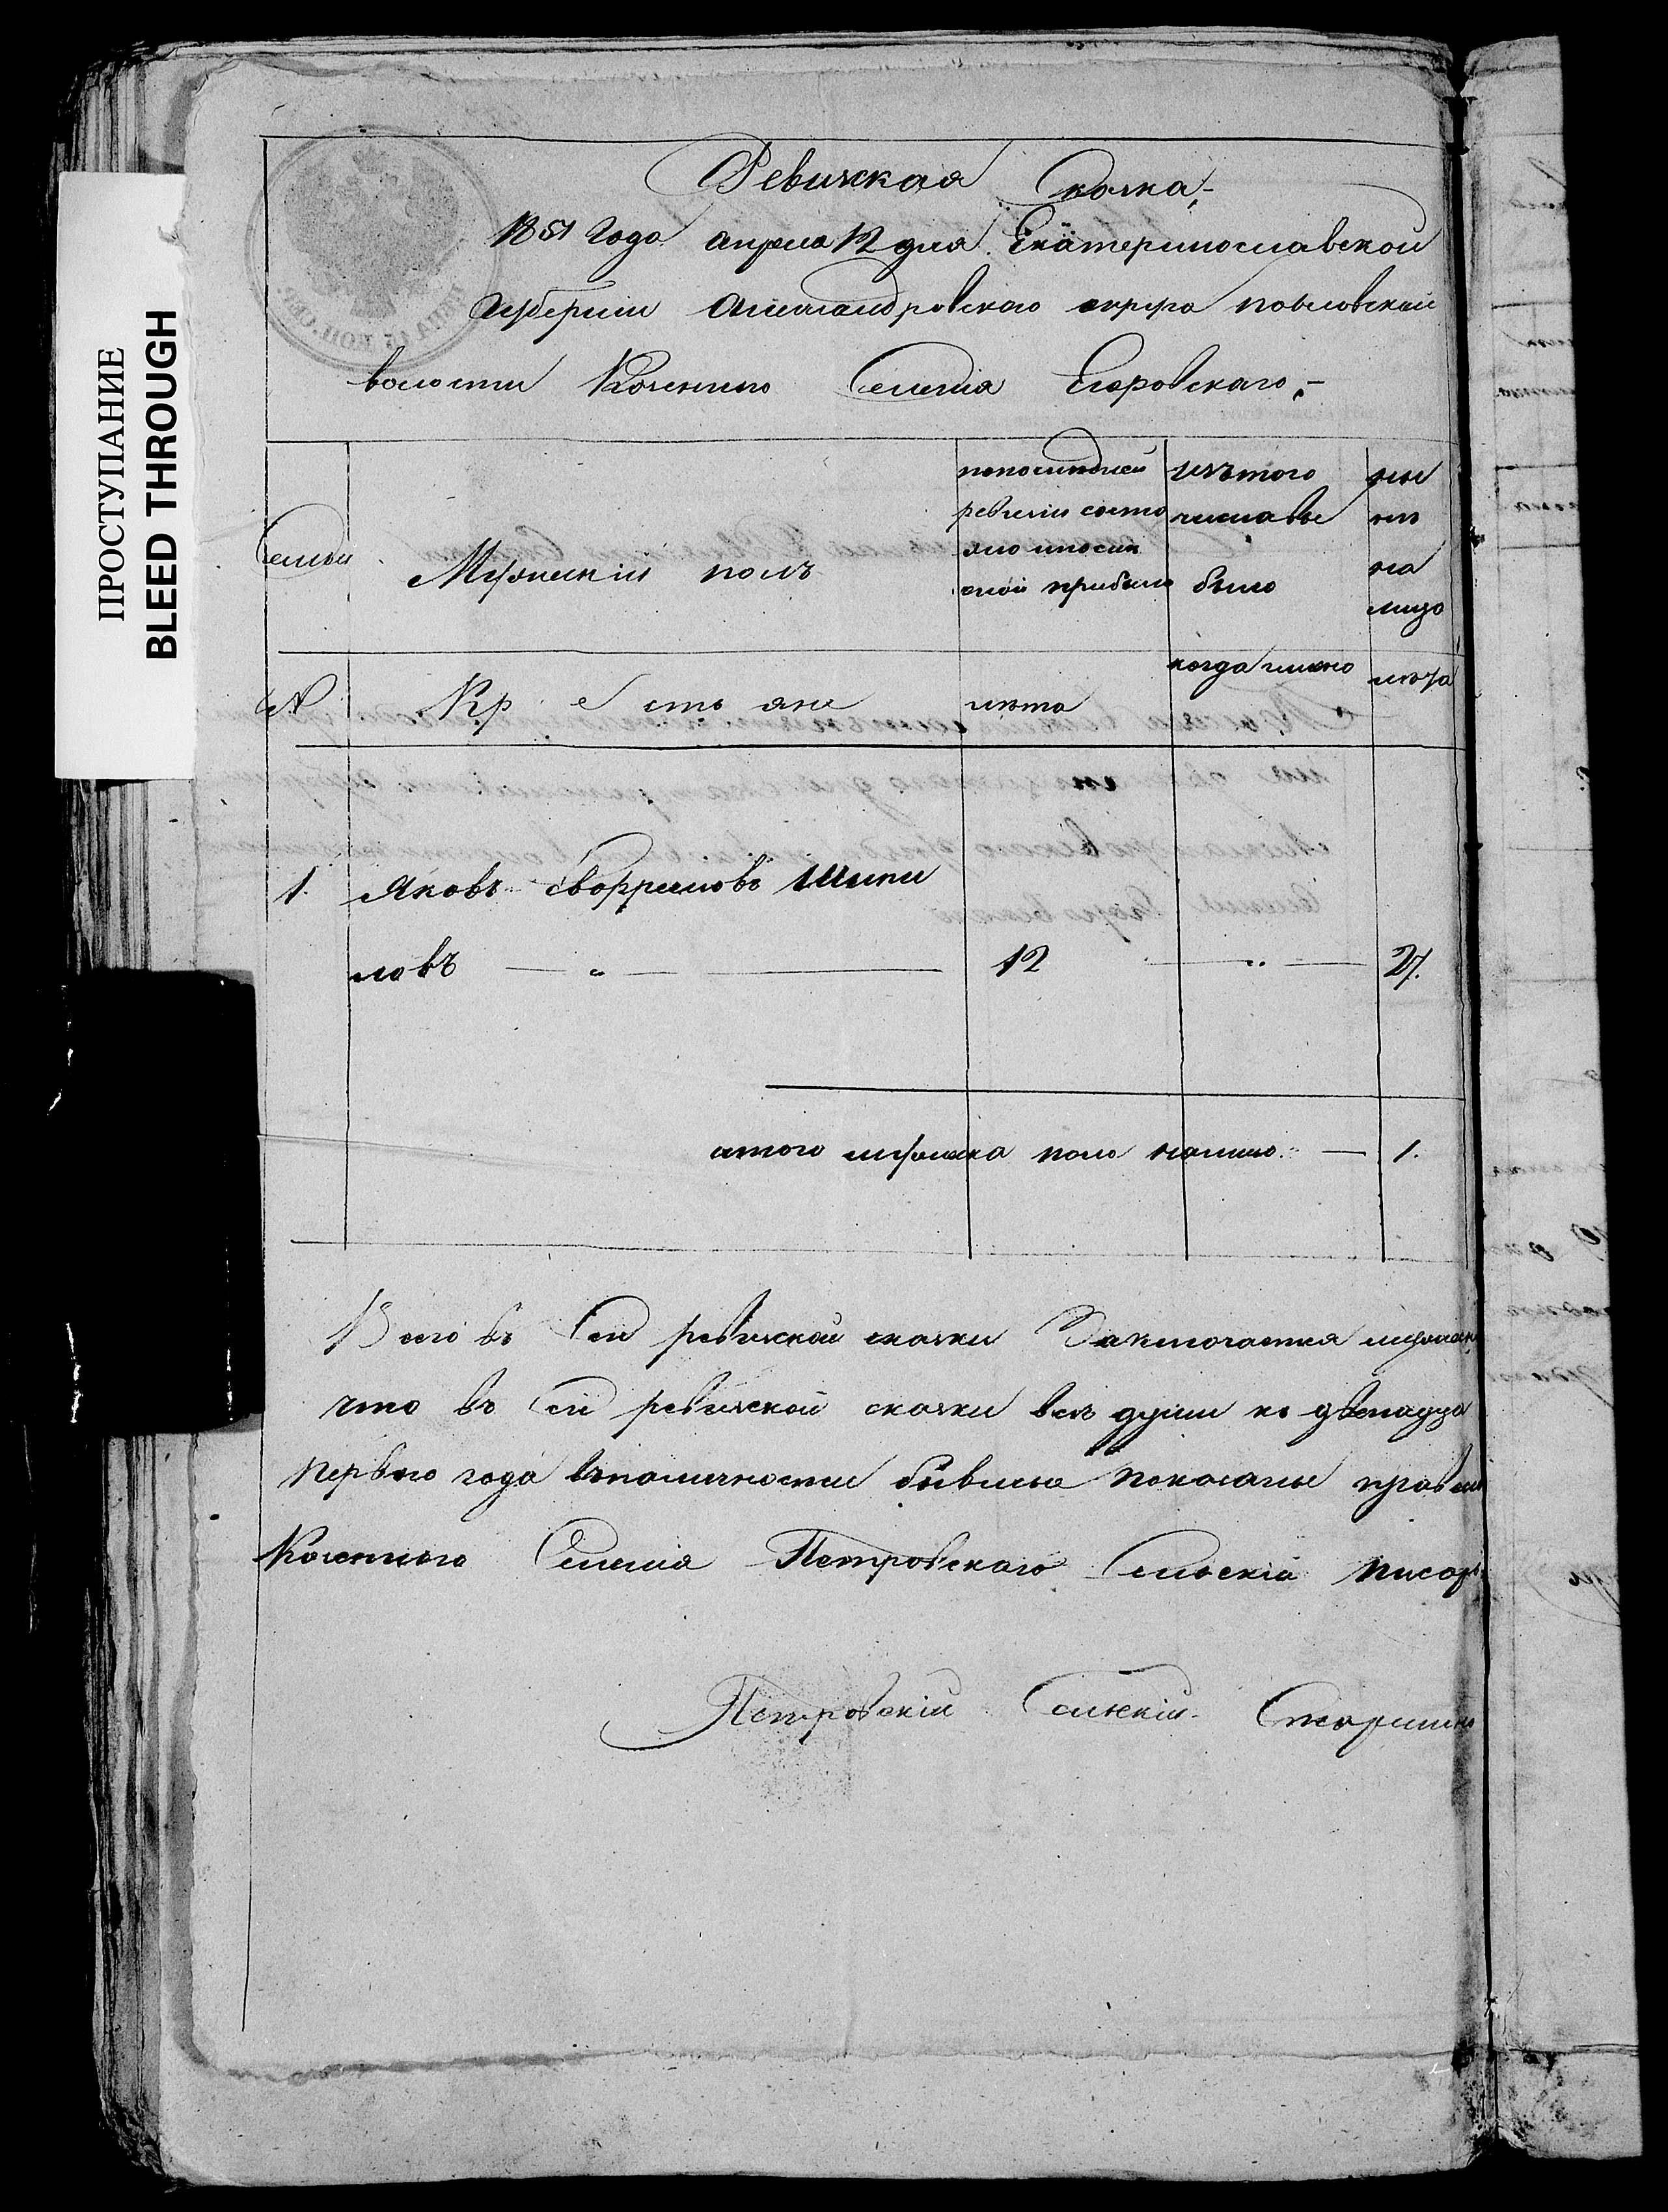 ПРОСТУПАНИЕ
BLEED THROUGH
Ревижкая Скаска,-
1851 Года апреля 12 дня Екатеринославской
Губернии Александровского округа Повловской
волости Козенного Селенїя Егоровскаго,-
Семьи
Мужескїй полъ
попоследней
ревизїи состо
яло ипосли
оной прибыло
изътого
числавы
было
ны
не
на
лицо
№
Крестьяне
лѣта
когда имено
лѣта
1. Яковъ Шипи
ловъ — „ — 12 — „ — 27.
итого мужеска пола налицо — 1.
Всего въ Сей ревиской скаски Заключается мужеск
что въ Сей ревизской скаски всѣ души по двенадца
первого года бывшыя показаны
Козенного Селенїя Петровскаго Сельскїй писарь
Петровскїй Сельскїй Старшина